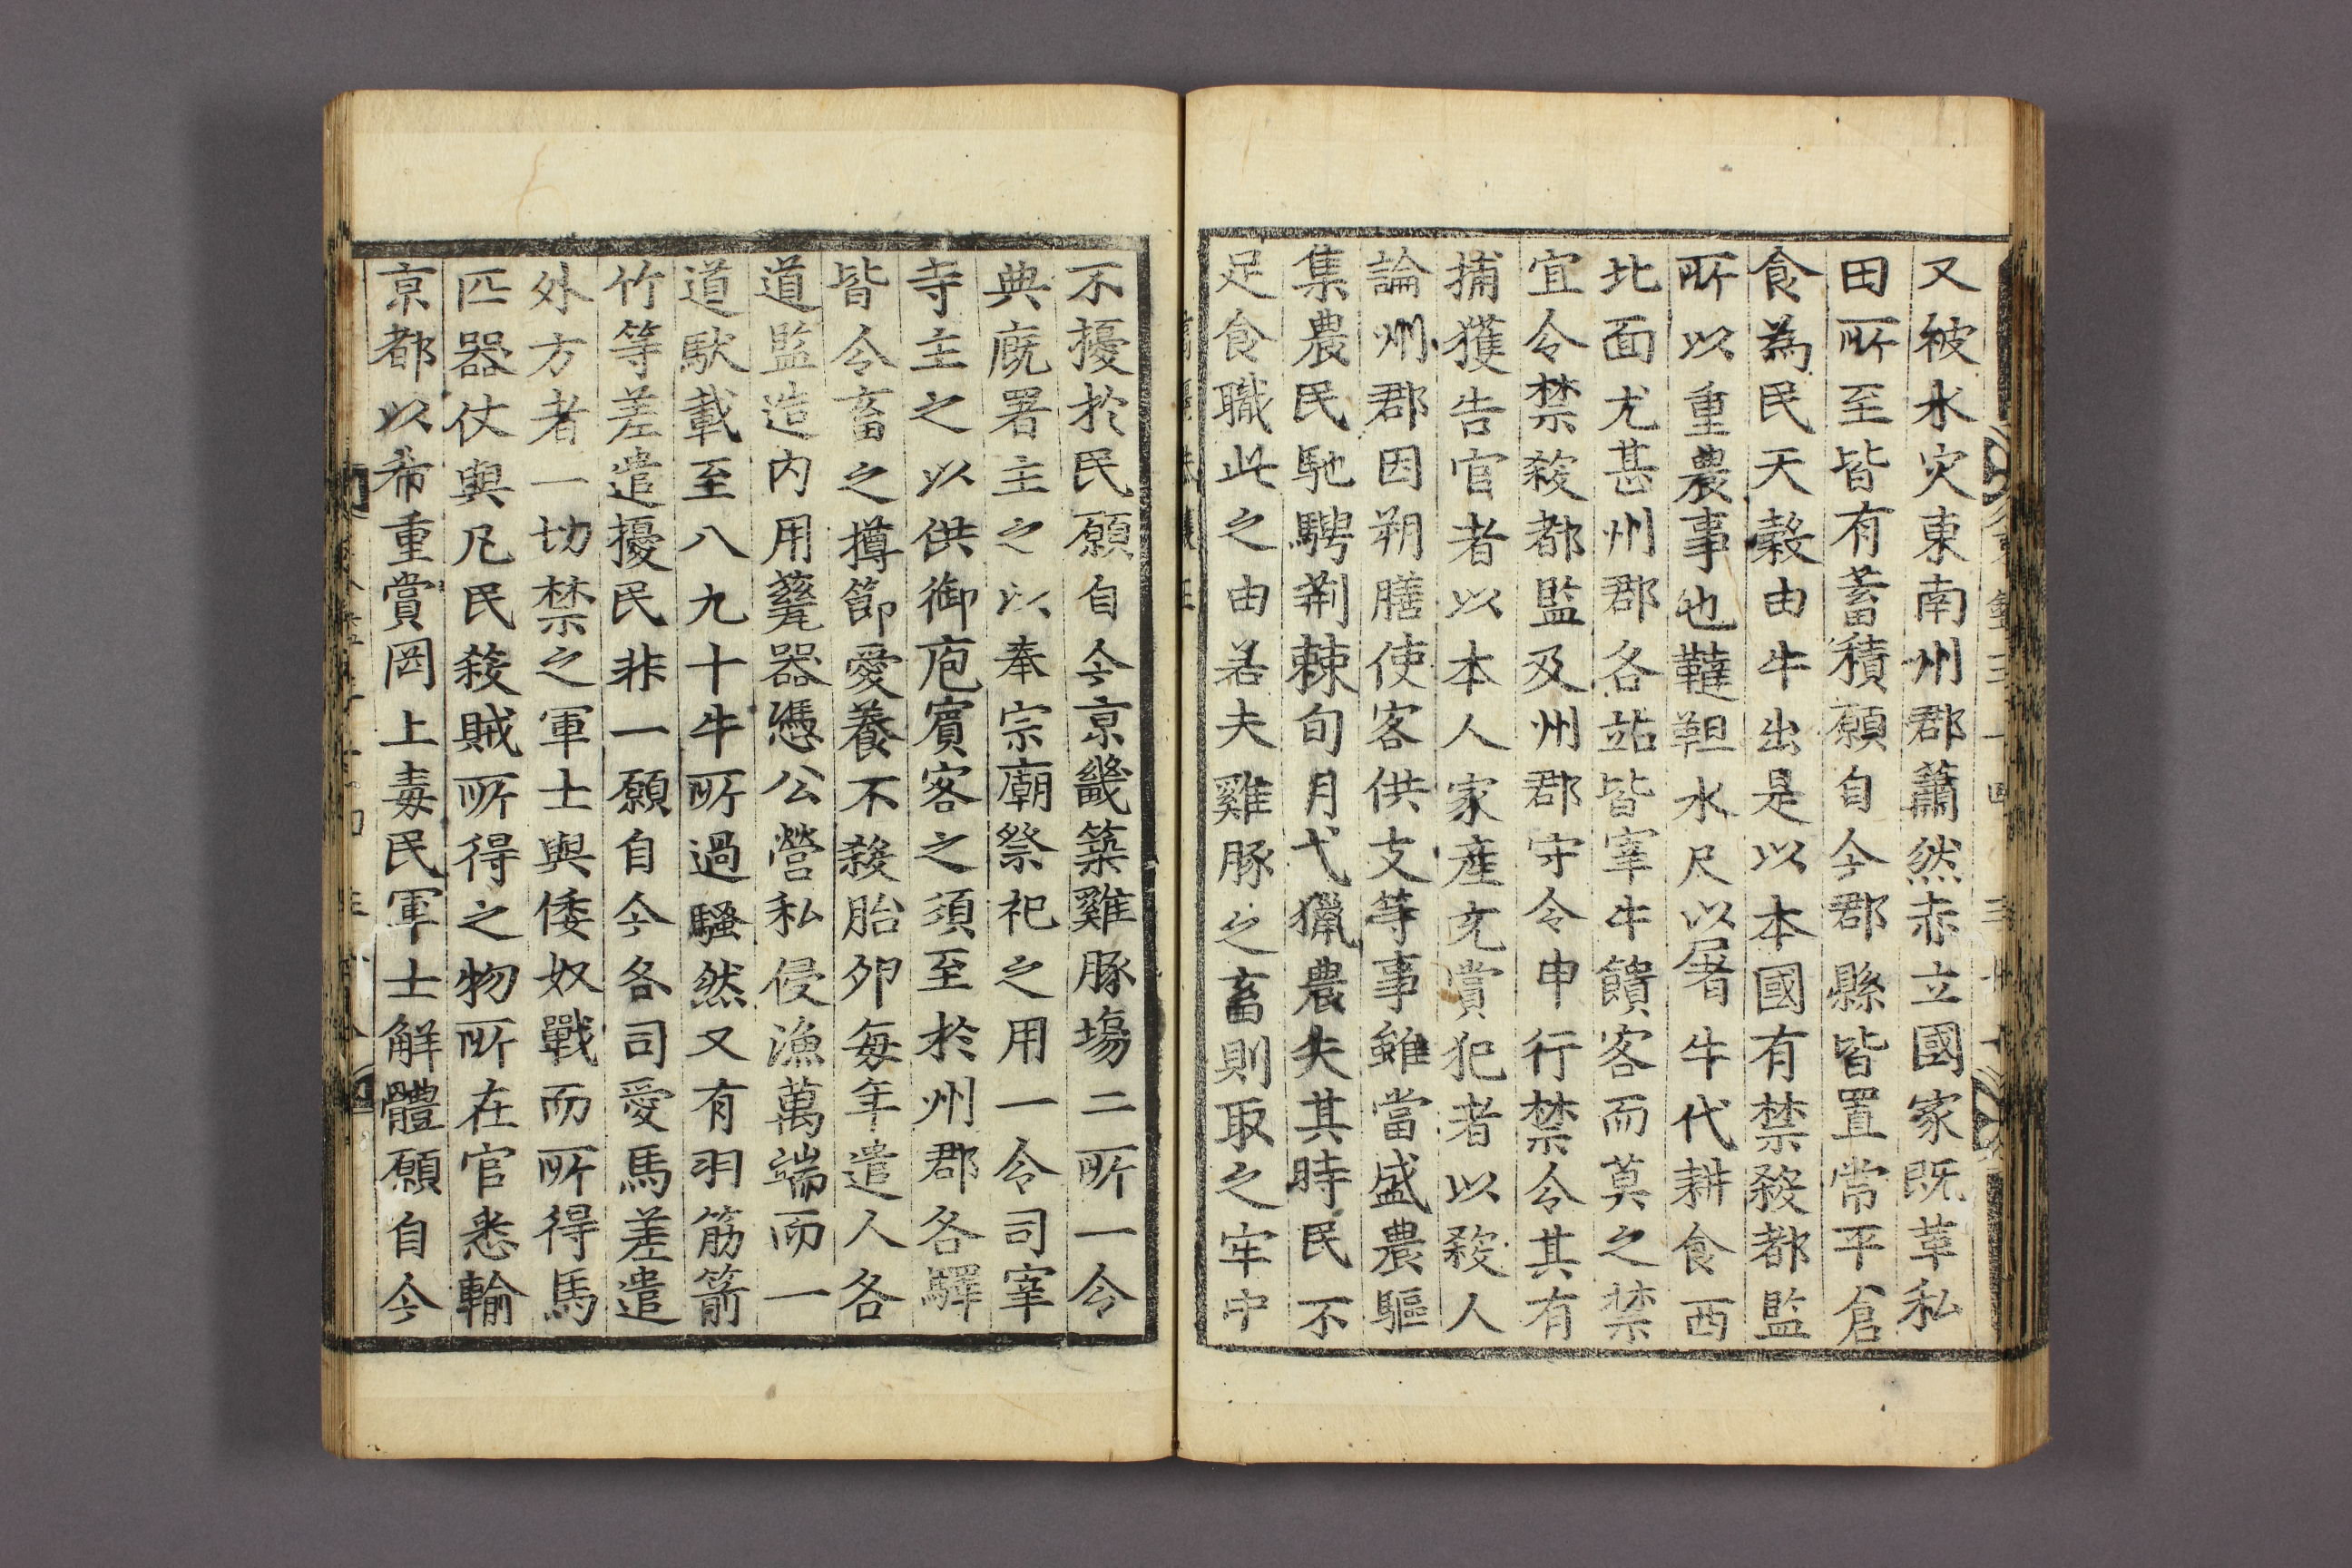 又被水灾東南州郡蕭然赤立國家既革私
田所至皆有蓄積願自今郡縣皆置常平倉
食為民天穀由牛出是以本國有禁殺都監
所以重農事也韃靼水尺以屠牛代耕食西
北面尤甚州郡各站皆宰牛饋客而莫之禁
宜令禁殺都監及州郡守令申行禁令其有
捕獲告官者以本人家產充賞犯者以殺人
論州郡因朔膳使客供支等事雖當盛農驅
集農民馳騁荊棘旬月弋獵農失其時民不
足食職此之由若夫雞豚之畜則取之牢中
不擾於民願自今京畿築雞豚塲二所一令
典廐署主之以奉宗廟祭祀之用一令司宰
寺主之以供御庖賓客之須至於州郡各驛
皆令畜之撙節愛養不殺胎夘每年遣人各
道監造內用甆器憑公營私侵漁萬端而一
道馱載至八九十牛所過騷然又有羽筋箭
竹等差遣擾民非一願自今各司愛馬差遣
外方者一切禁之軍士與倭奴戰而所得馬
匹器仗與凡民殺賊所得之物所在官悉輸
京都以希重賞罔上毒民軍士解體願自今